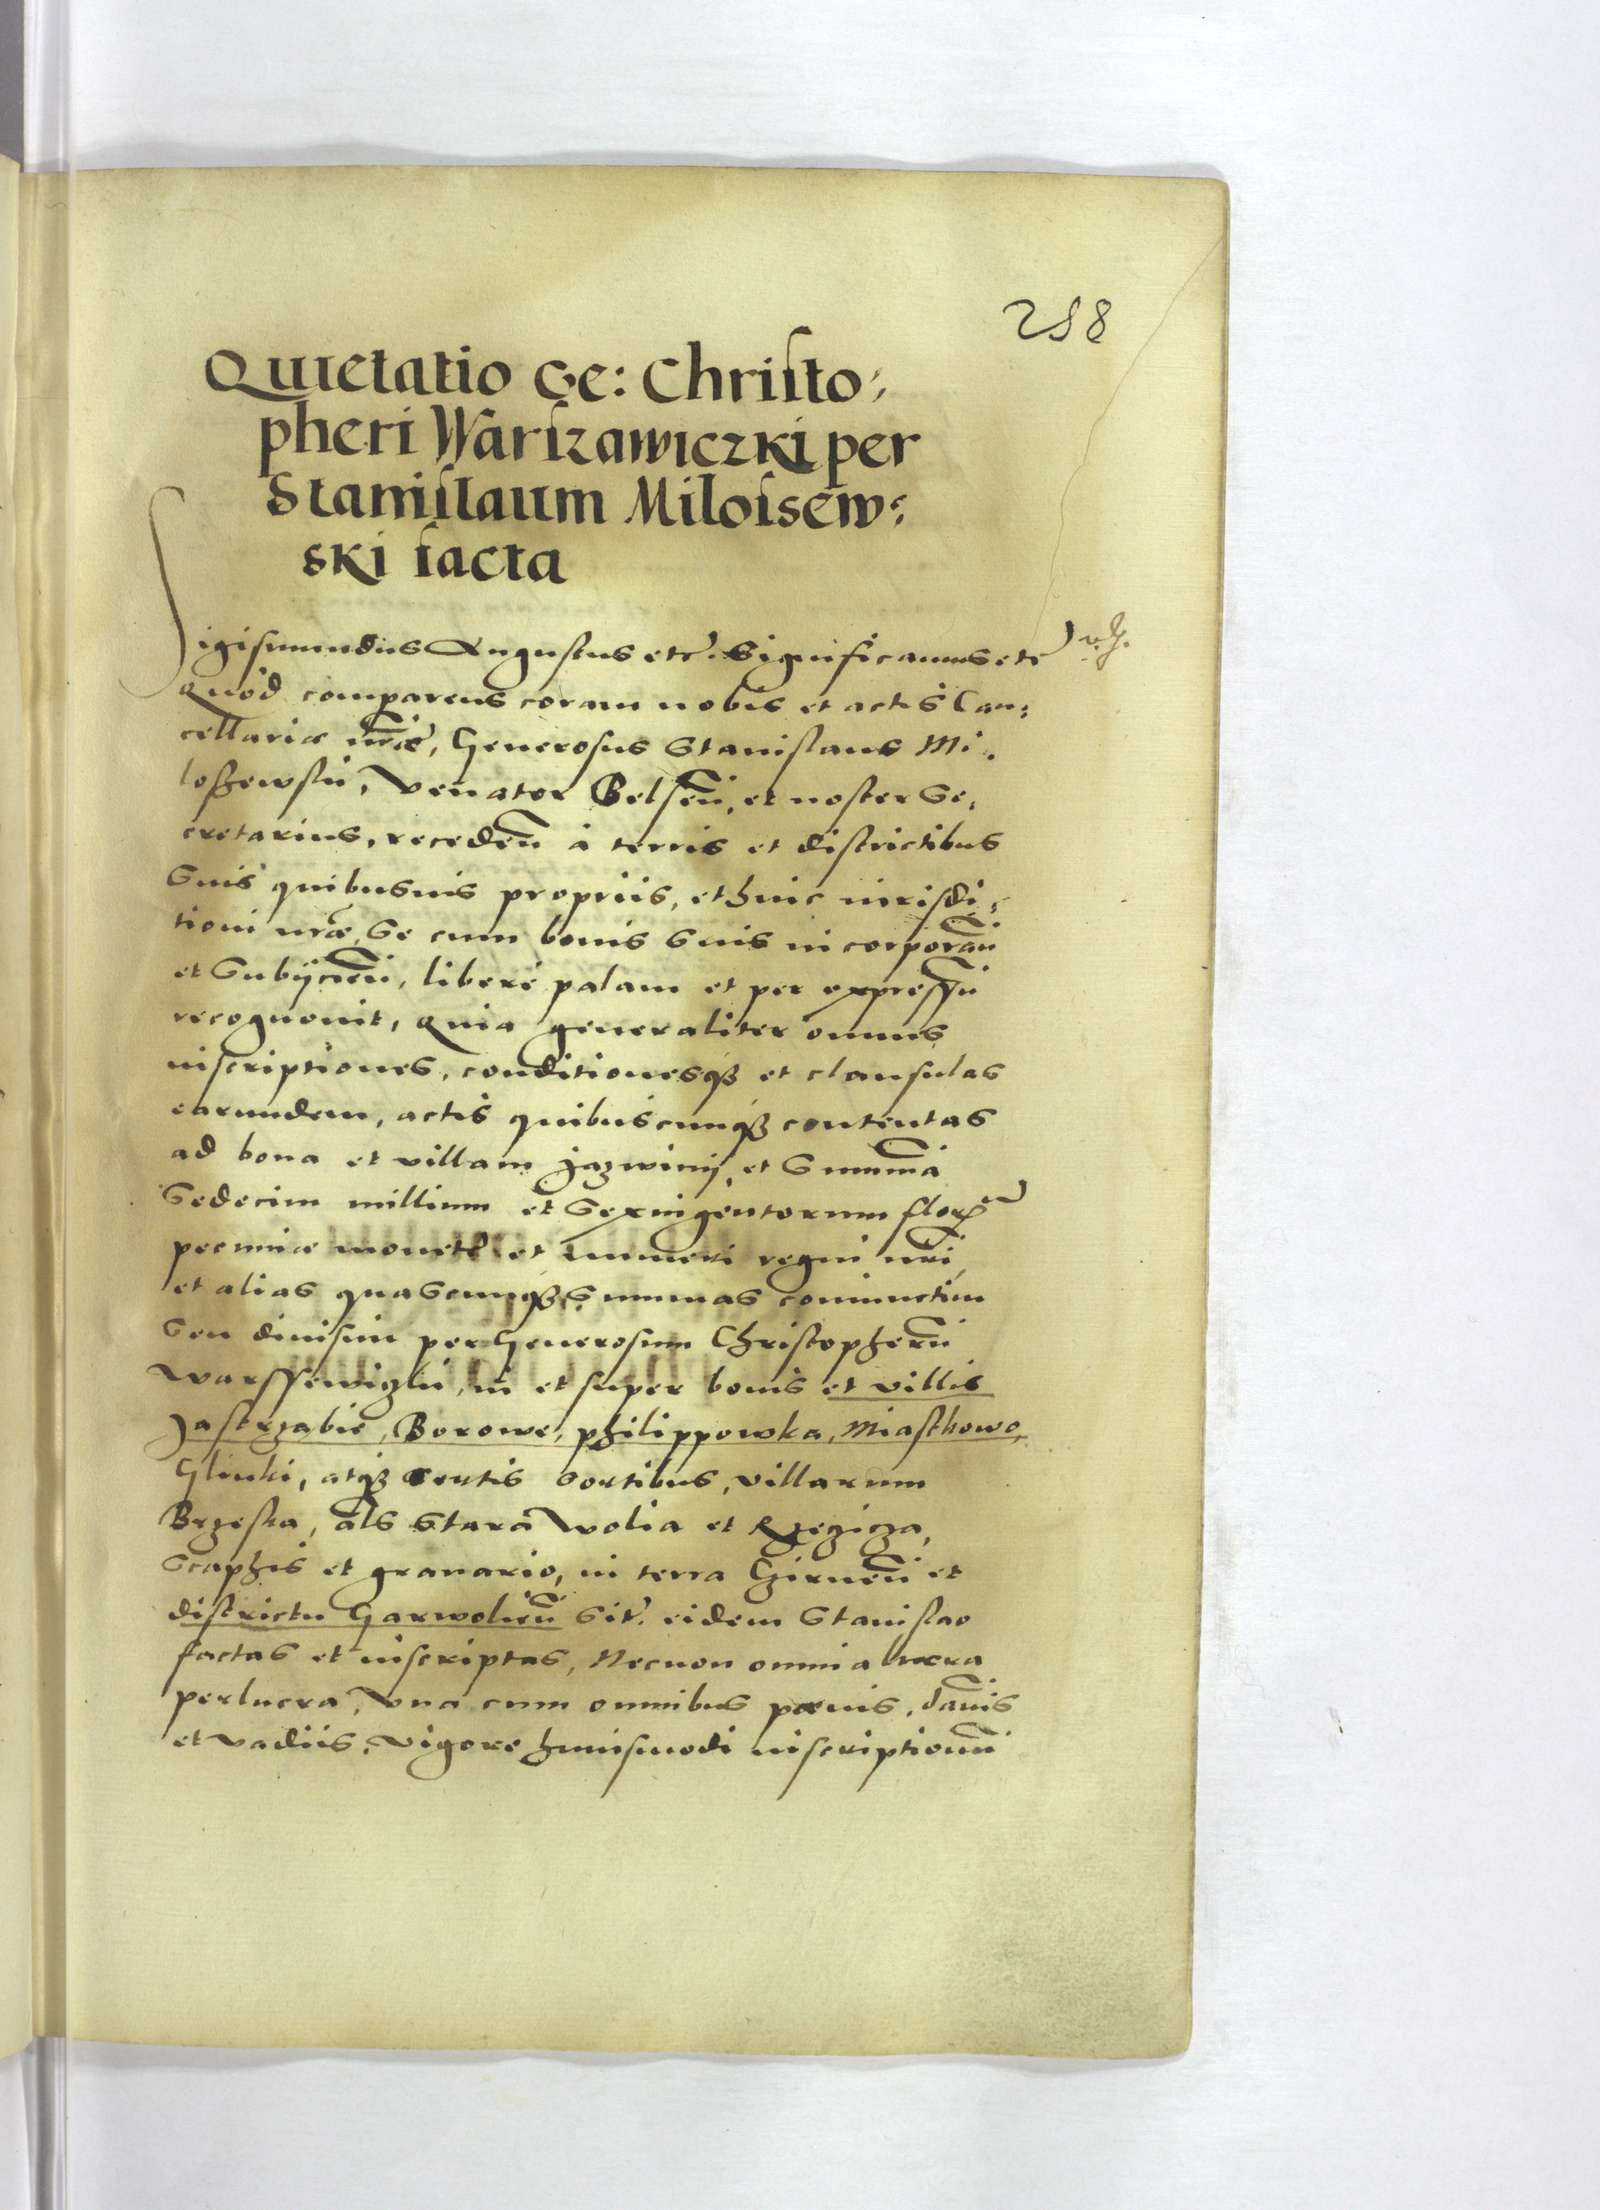 258
Quietatio Ge: Christo:
pheri Warszawiczki per
Stanislaum Miloisew:
ski facta
Sigismundus Augustus etc. Significamus etc
Quod comparens coram nobis et actis Can:
cellariæ nræ, Generosus Stanislaus Mi:
loszewski, Venator Belsen, et noster Se:
cretarius, receden à terris et districtibus
suis quibusuis propriis, et huic iurisdi:
tioni nræ, se cum bonis suis incorporan
et subijcien, liberè palam et per expressu
recognouit, Quia generaliter omnes
inscriptiones, conditionesq3 et clausulas
earundem, actis quibuscunq3 contentas
ad bona et villam Jazwiny, et summa
sedecim millium et sexingentorum flor
pecuniæ monete et numeri regni nri,
et alias quascunq3 summas coniunctim
seu diuisim per Generosum Christopheru
Warssewiczki, in et super bonis et villis
Jastrzabie, Borowe, Philippowka, Miastkowo,
Glinki, atq3 certis sortibus, villarum
Brzeska, als Stara Wolia et Rzezicza,
scaphis et granario, in terra Czirnen et
districtu Garwolien sit. eidem Stanislao
factas et inscriptas, Necnon omnia lucra
perlucra, Vna cum omnibus pænis, damnis
et vadiis, vigore huiusmodi inscriptionu